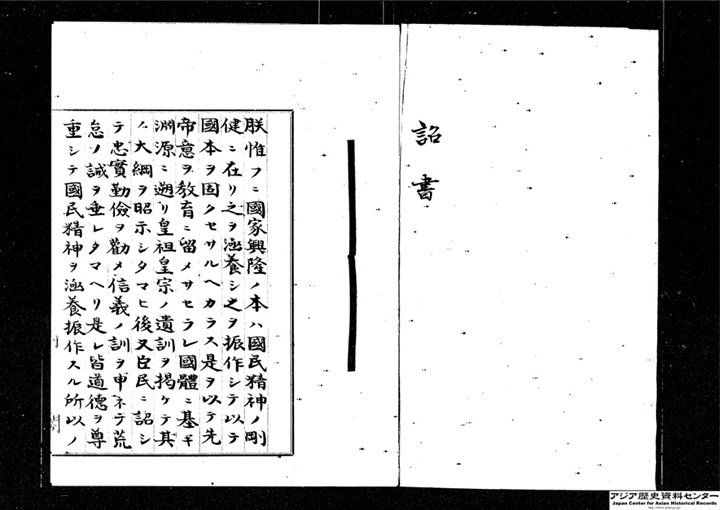 詔書
朕惟フニ國家興隆ノ本ハ國民精神ノ剛
健ニ在リ之ヲ涵養シ之ヲ振作シテ以テ
國本ヲ固クセサルヘカラス是ヲ以テ先
帝意ヲ敎育ニ留メサセラレ國體ニ基キ
淵源ニ遡リ皇祖皇宗ノ遺訓ヲ掲ケテ其
ノ大綱ヲ昭示シタマヒ後又臣民ニ詔シ
テ忠實勤儉ヲ勸メ信義ノ訓ヲ申ネテ荒
怠ノ誡ヲ垂レタマヘリ是レ皆道德ヲ尊
重シテ國民精神ヲ涵養振作スル所以ノ
アジア歴史資料センター
Japan Center for Asian Historical Records
http://www.jacar.go.jp/